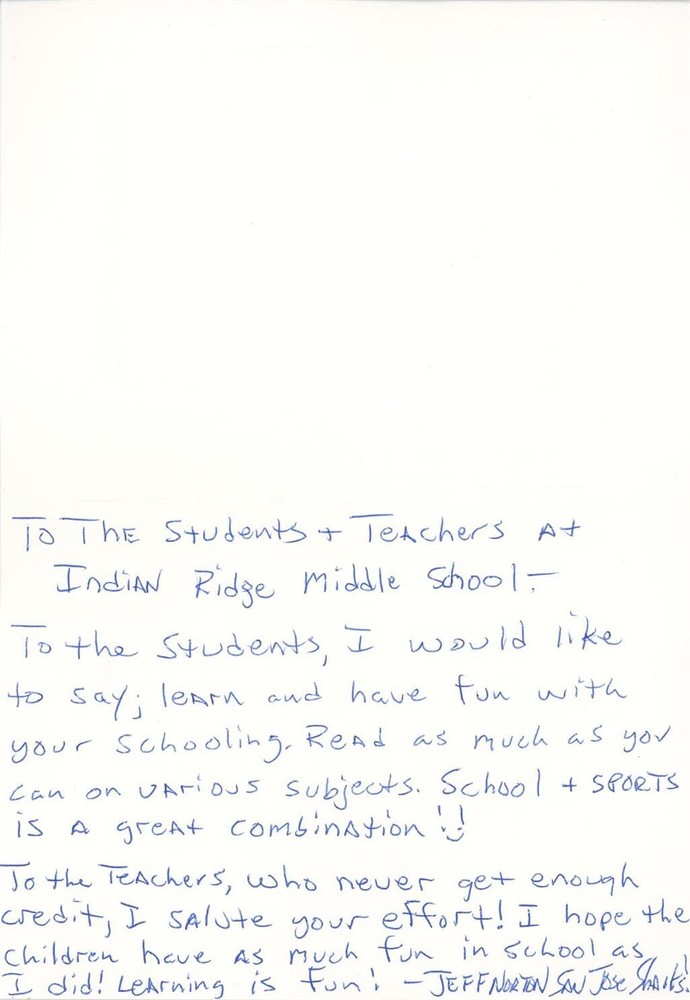 To The Students + Teachers At
Indian Ridge Middle School:-
To the Students, I would like
to say; learn and have fun with
your schooling. Read as much as you
can on various subjects. School + SPORTS
is a great combination!!
To the Teachers, who never get enough
credit, I salute your effort! I hope the
children have as much fun in school as
I did! Learning is fun! - JEFF NORTON San Jose Sharks!